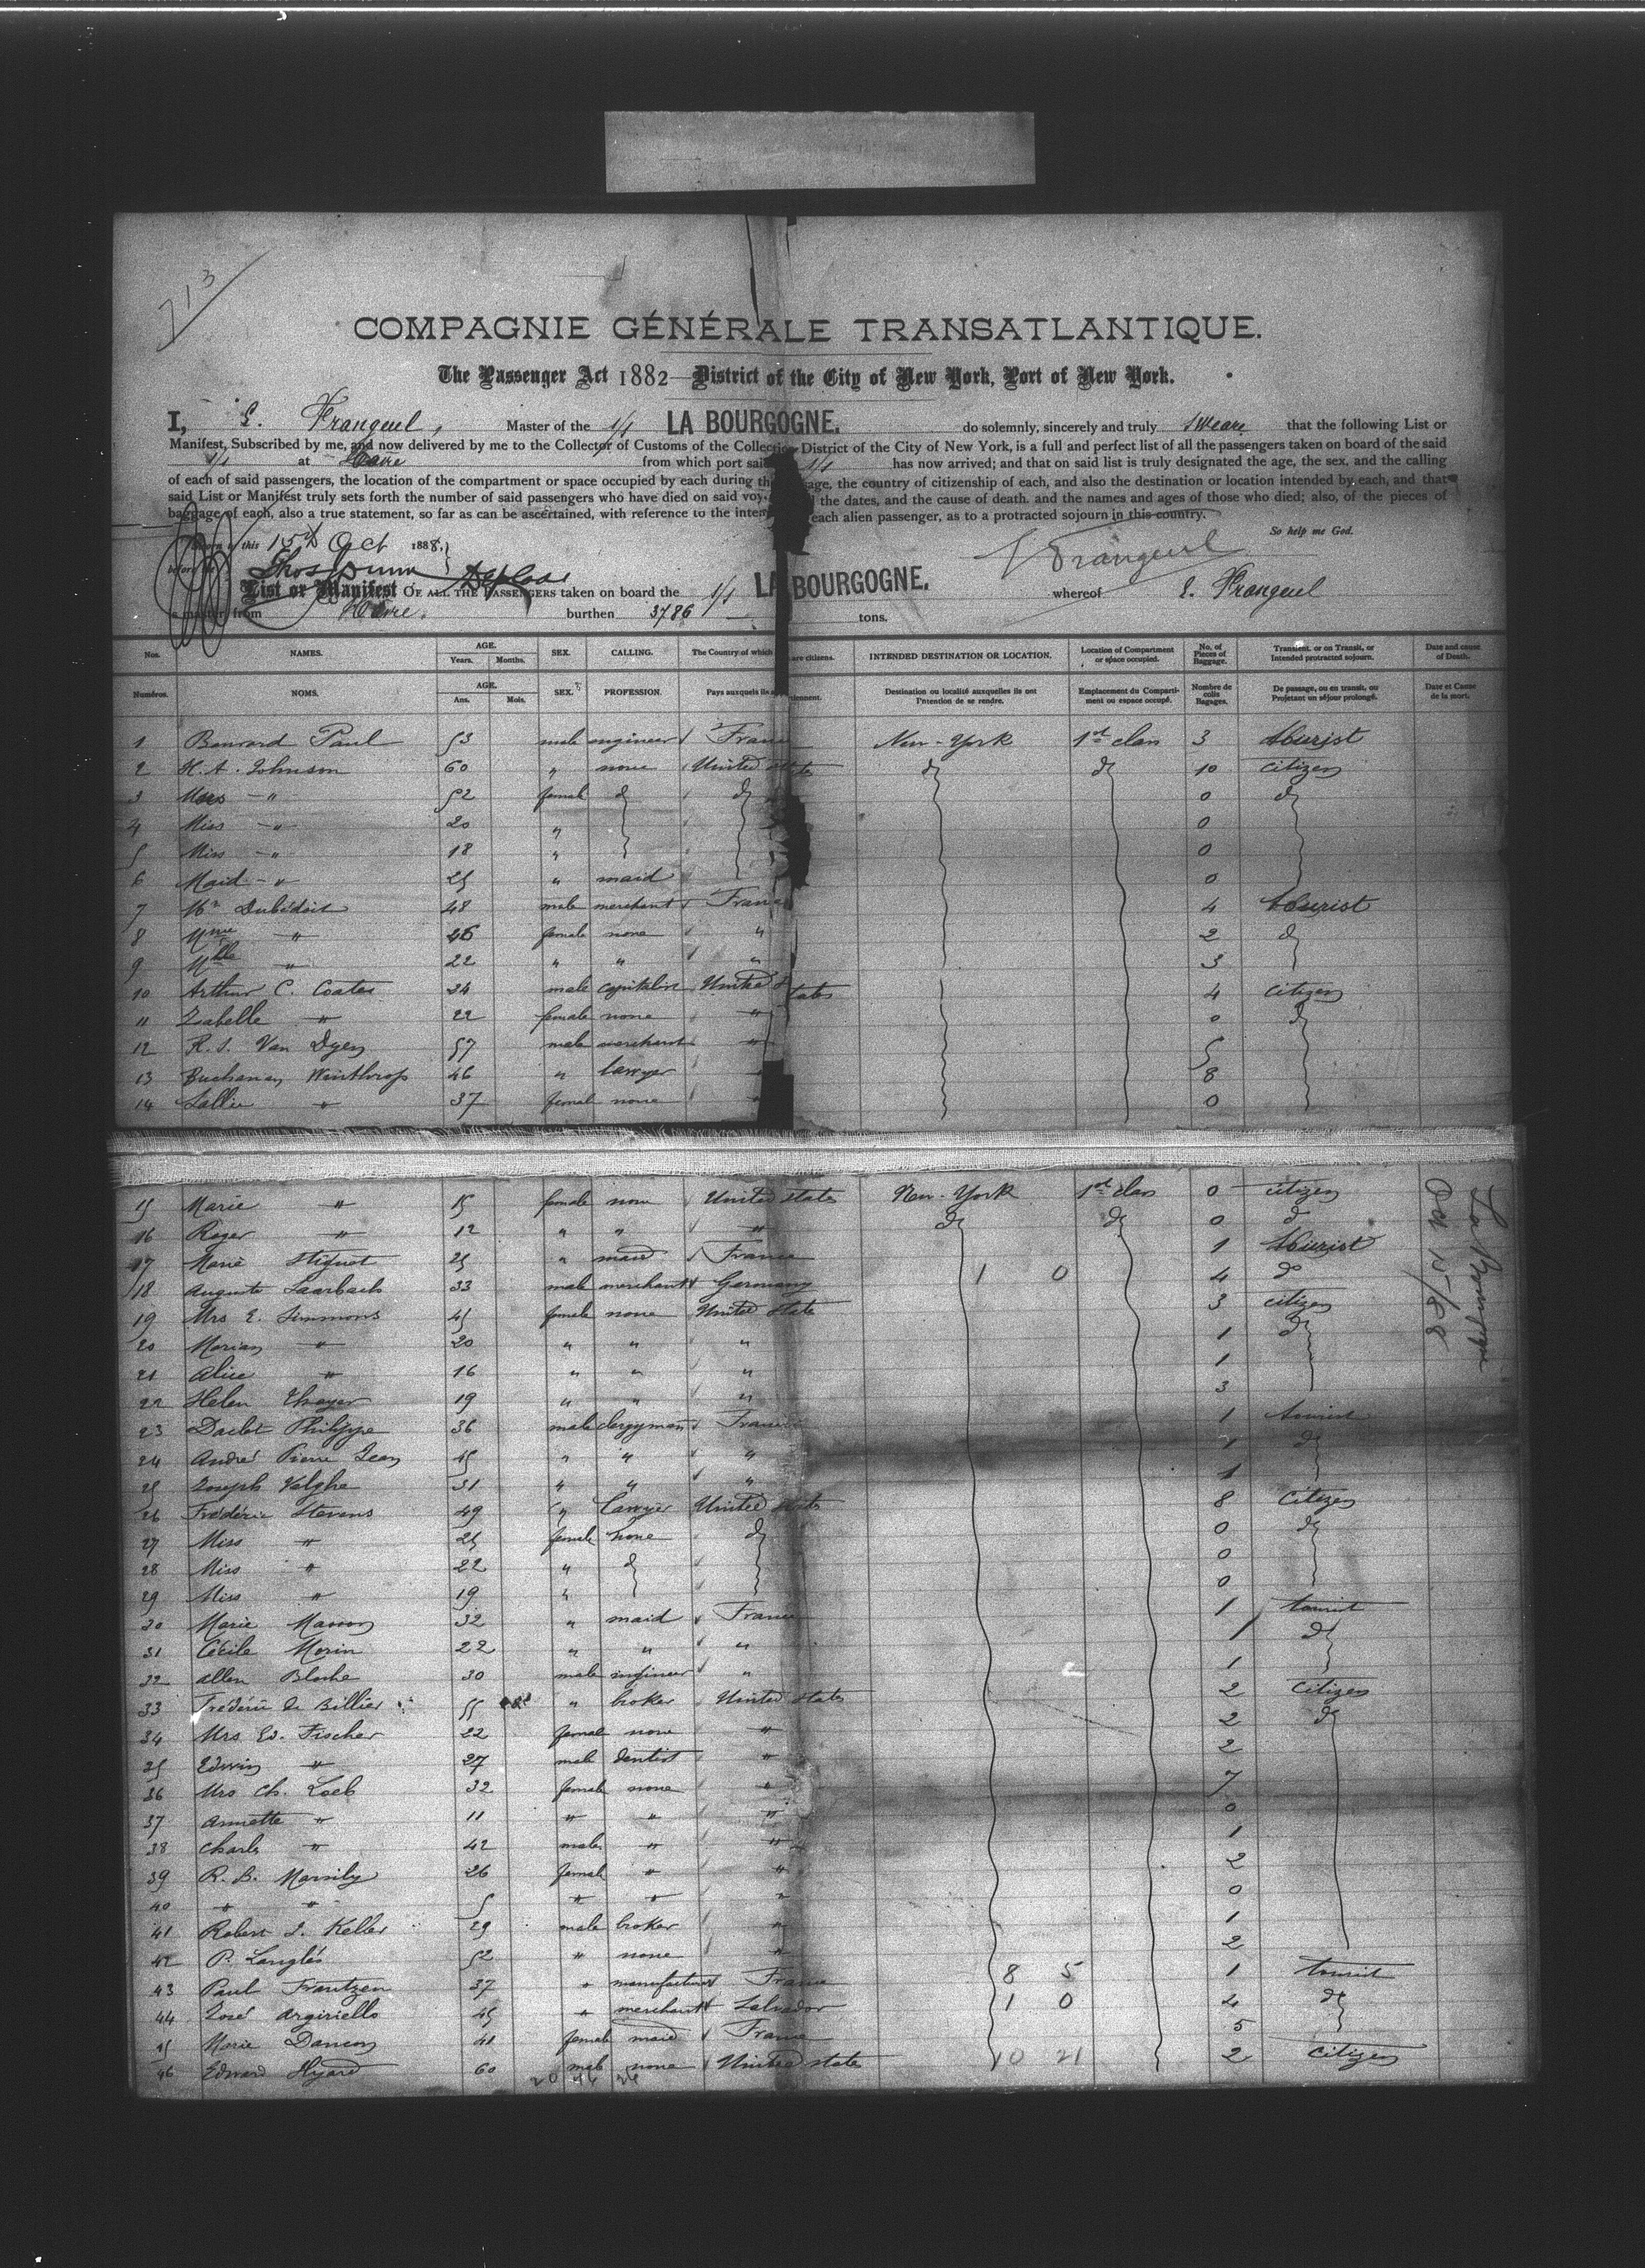 713
COMPAGNIE GÉNÉRALE TRANSATLANTIQUE.
The Passenger Act 1882—District of the City of New York, Port of New York.
I, E. Frangeul, Master of the S/S LA BOURGOGNE. do solemnly, sincerely and truly swear that the following List or
Manifest, Subscribed by me, and now delivered by me to the Collector of Customs of the Collection District of the City of New York, is a full and perfect list of all the passengers taken on board of the said
S/S at Havre from which port said S/S has now arrived; and that on said list is truly designated the age, the sex. and the calling
of each of said passengers, the location of the compartment or space occupied by each during th age, the country of citizenship of each, and also the destination or location intended by each, and that
said List or Manifest truly sets forth the number of said passengers who have died on said voy the dates, and the cause of death. and the names and ages of those who died; also, of the pieces of
baggage of each, also a true statement, so far as can be ascertained, with reference to the inten each alien passenger, as to a protracted sojourn in this country.
So help me God.
this 15th Oct 1888.
Frangeul
List or Manifest OF ALL THE PASSENGERS taken on board the S/S LA BOURGOGNE. whereof E. Frangeul
is master, from Havre. burthen 3786 tons.
Nos. NAMES. AGE. Years. Months. SEX. CALLING. The Country of which are citizens. INTENDED DESTINATION OR LOCATION. Location of Compartment or space occupied. No. of Pieces of Baggage. Transient. or on Transit, or Intended protracted sojourn. Date and cause of Death.
Numéros. NOMS. AGE. Ans. Mois. SEX. PROFESSION. Pays auxquels ils a tiennent. Destination ou localité auxquelles ils ont l'intention de se rendre. Emplacement du Compartiment ou espace occupé. Nombre de colis Bagages. De passage, ou en transit, ou Projetant un séjour prolongé. Date et Cause de la mort.
1 Bonvard Paul 53 male engineer France New-York 1st class 3 tourist
2 H. A. Johnson 60 " none United States do do 10 citizen
3 Mrs — " 52 female do do 0 do
4 Miss — " 20 " 0
5 Miss — " 18 " 0
6 Maid — " 25 " maid 0
7 Mr Dubédoit 48 male merchant France 4 tourist
8 Mme " 46 female none " 2 do
9 Mlle " 22 " " " 3
10 Arthur C. Coates 24 male capitalist United States 4 citizen
11 Isabelle " 22 female none " 0 do
12 R. S. Van Dyen 57 male merchant " 5
13 Buchanan Winthrop 46 " lawyer 8
14 Sallie " 37 female none " 0
15 Marie " 15 female none United States New-York 1st class 0 citizen
16 Roger " 12 " " " do do 0 do
17 Marie Stiquet 25 " maid France 1 tourist
18 Auguste Saarbach 33 male merchant Germany 1 0 4 do
19 Mrs E. Simmons 45 female none United State 3 citizen
20 Marian " 20 " " " 1 do
21 Alice " 16 " " " 1
22 Helen Thayer 19 " " " 3
23 Daclet Philippe 36 male clergyman France 1 tourist
24 André Pierre Jean 45 " " " 1 do
25 Joseph Valghe 31 " " " 1
26 Frédéric Stevens 49 " Lawyer United States 8 Citizen
27 Miss " 25 female none do 0 do
28 Miss " 22 " do 0
29 Miss " 19 " 0
30 Marie Masson 32 " maid France 1 tourist
31 Cécile Morin 22 " " " 1 do
32 Allen Blashe 30 male ingineer " 1
33 Frédéric de Billier 55 " broker United States 2 Citizen
34 Mrs Ed. Fischer 22 female none " 2 do
35 Edwin " 27 male dentist " 2
36 Mrs Ch. Loeb 32 female none " 7
37 Annette " 11 " " " 0
38 Charles " 42 male " " 1
39 R. B. Marsily 26 female " " 2
40 " " 5 " " " 0
41 Robert J. Keller 29 male broker " 1
42 P. Langlés 52 " none " 2
43 Paul Frantzen 37 " manufacturer France 8 5 1 tourist
44 José Argiriello 45 " merchant Salvador 1 0 4 do
45 Marie Dancon 41 female maid France 5
46 Edward Hyard 60 male none United State 10 21 2 Citizen
20 46 26
La Bourgogne
Oct 15/88